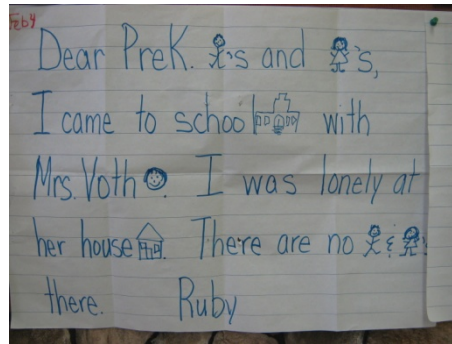 Dear PreK. 's and 's,
I came to school with
Mrs. Voth . I was lonely at
her house . There are no & 's
there. Ruby